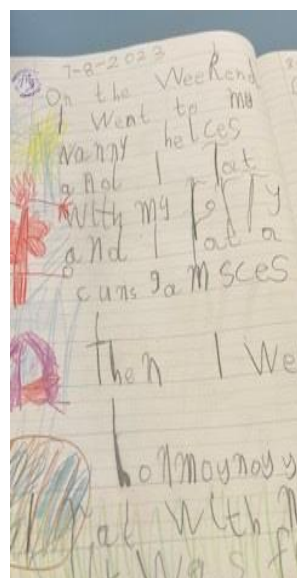 7-8-2023
On the Weekend
I Went to my
Nanny helces
and I Lat
With my Polly
and I Lat a
cuns gamsces
Then I We
at With
Was f